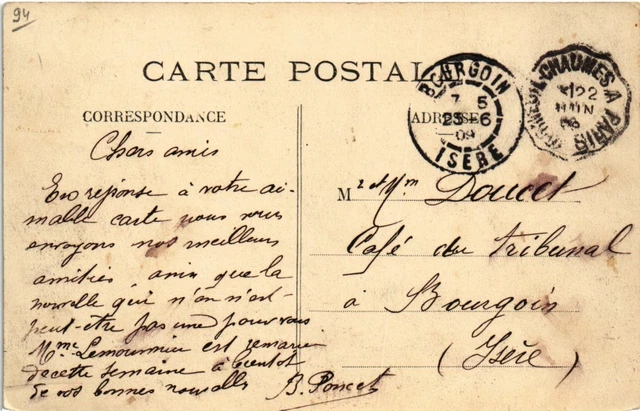 94
CARTE POSTALE
CORRESPONDANCE
ADRESSE
BOURGOIN
7 5
23-6
09
ISÈRE
CHAUMES A PARIS
22
JUIN
Chers amis
En réponse à votre ai-
mable carte nous vous
envoyons nos meilleurs
amitiés, ainsi que la
nouvelle qui n'en n'est-
peut-être pas une pour vous
Mme Lemourmier est remariée
de cette semaine à bientot
de vos bonnes nouvelles
B. Poncet
M r et Mme Doucet
Café du Tribunal
à Bourgoin
(Isère)